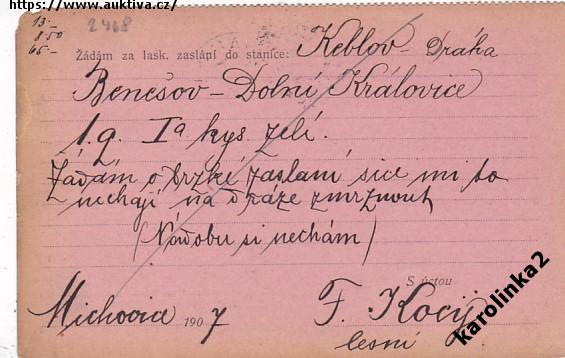 https://www.auktiva.cz/
13.-
8.50
65.-
2468
Žádám za lask. zaslání do stanice: Keblov - Dráha
Benešov - Dolní Královice
1. q. Iª kys. zelí.
Žádám o brzké zaslaní sice mi to
nechají na dráze zmrznout
(Nádobu si nechám)
S úctou
1907
F. Kocý
lesní
karolinka2